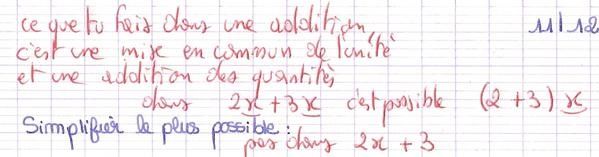 ce que tu fais dans une addition, 11/12
c'est une mise en commun de l'unité
et une addition des quantités
dans 2x + 3x c'est possible (2 + 3) x
Simplifier le plus possible :
pas dans 2x + 3